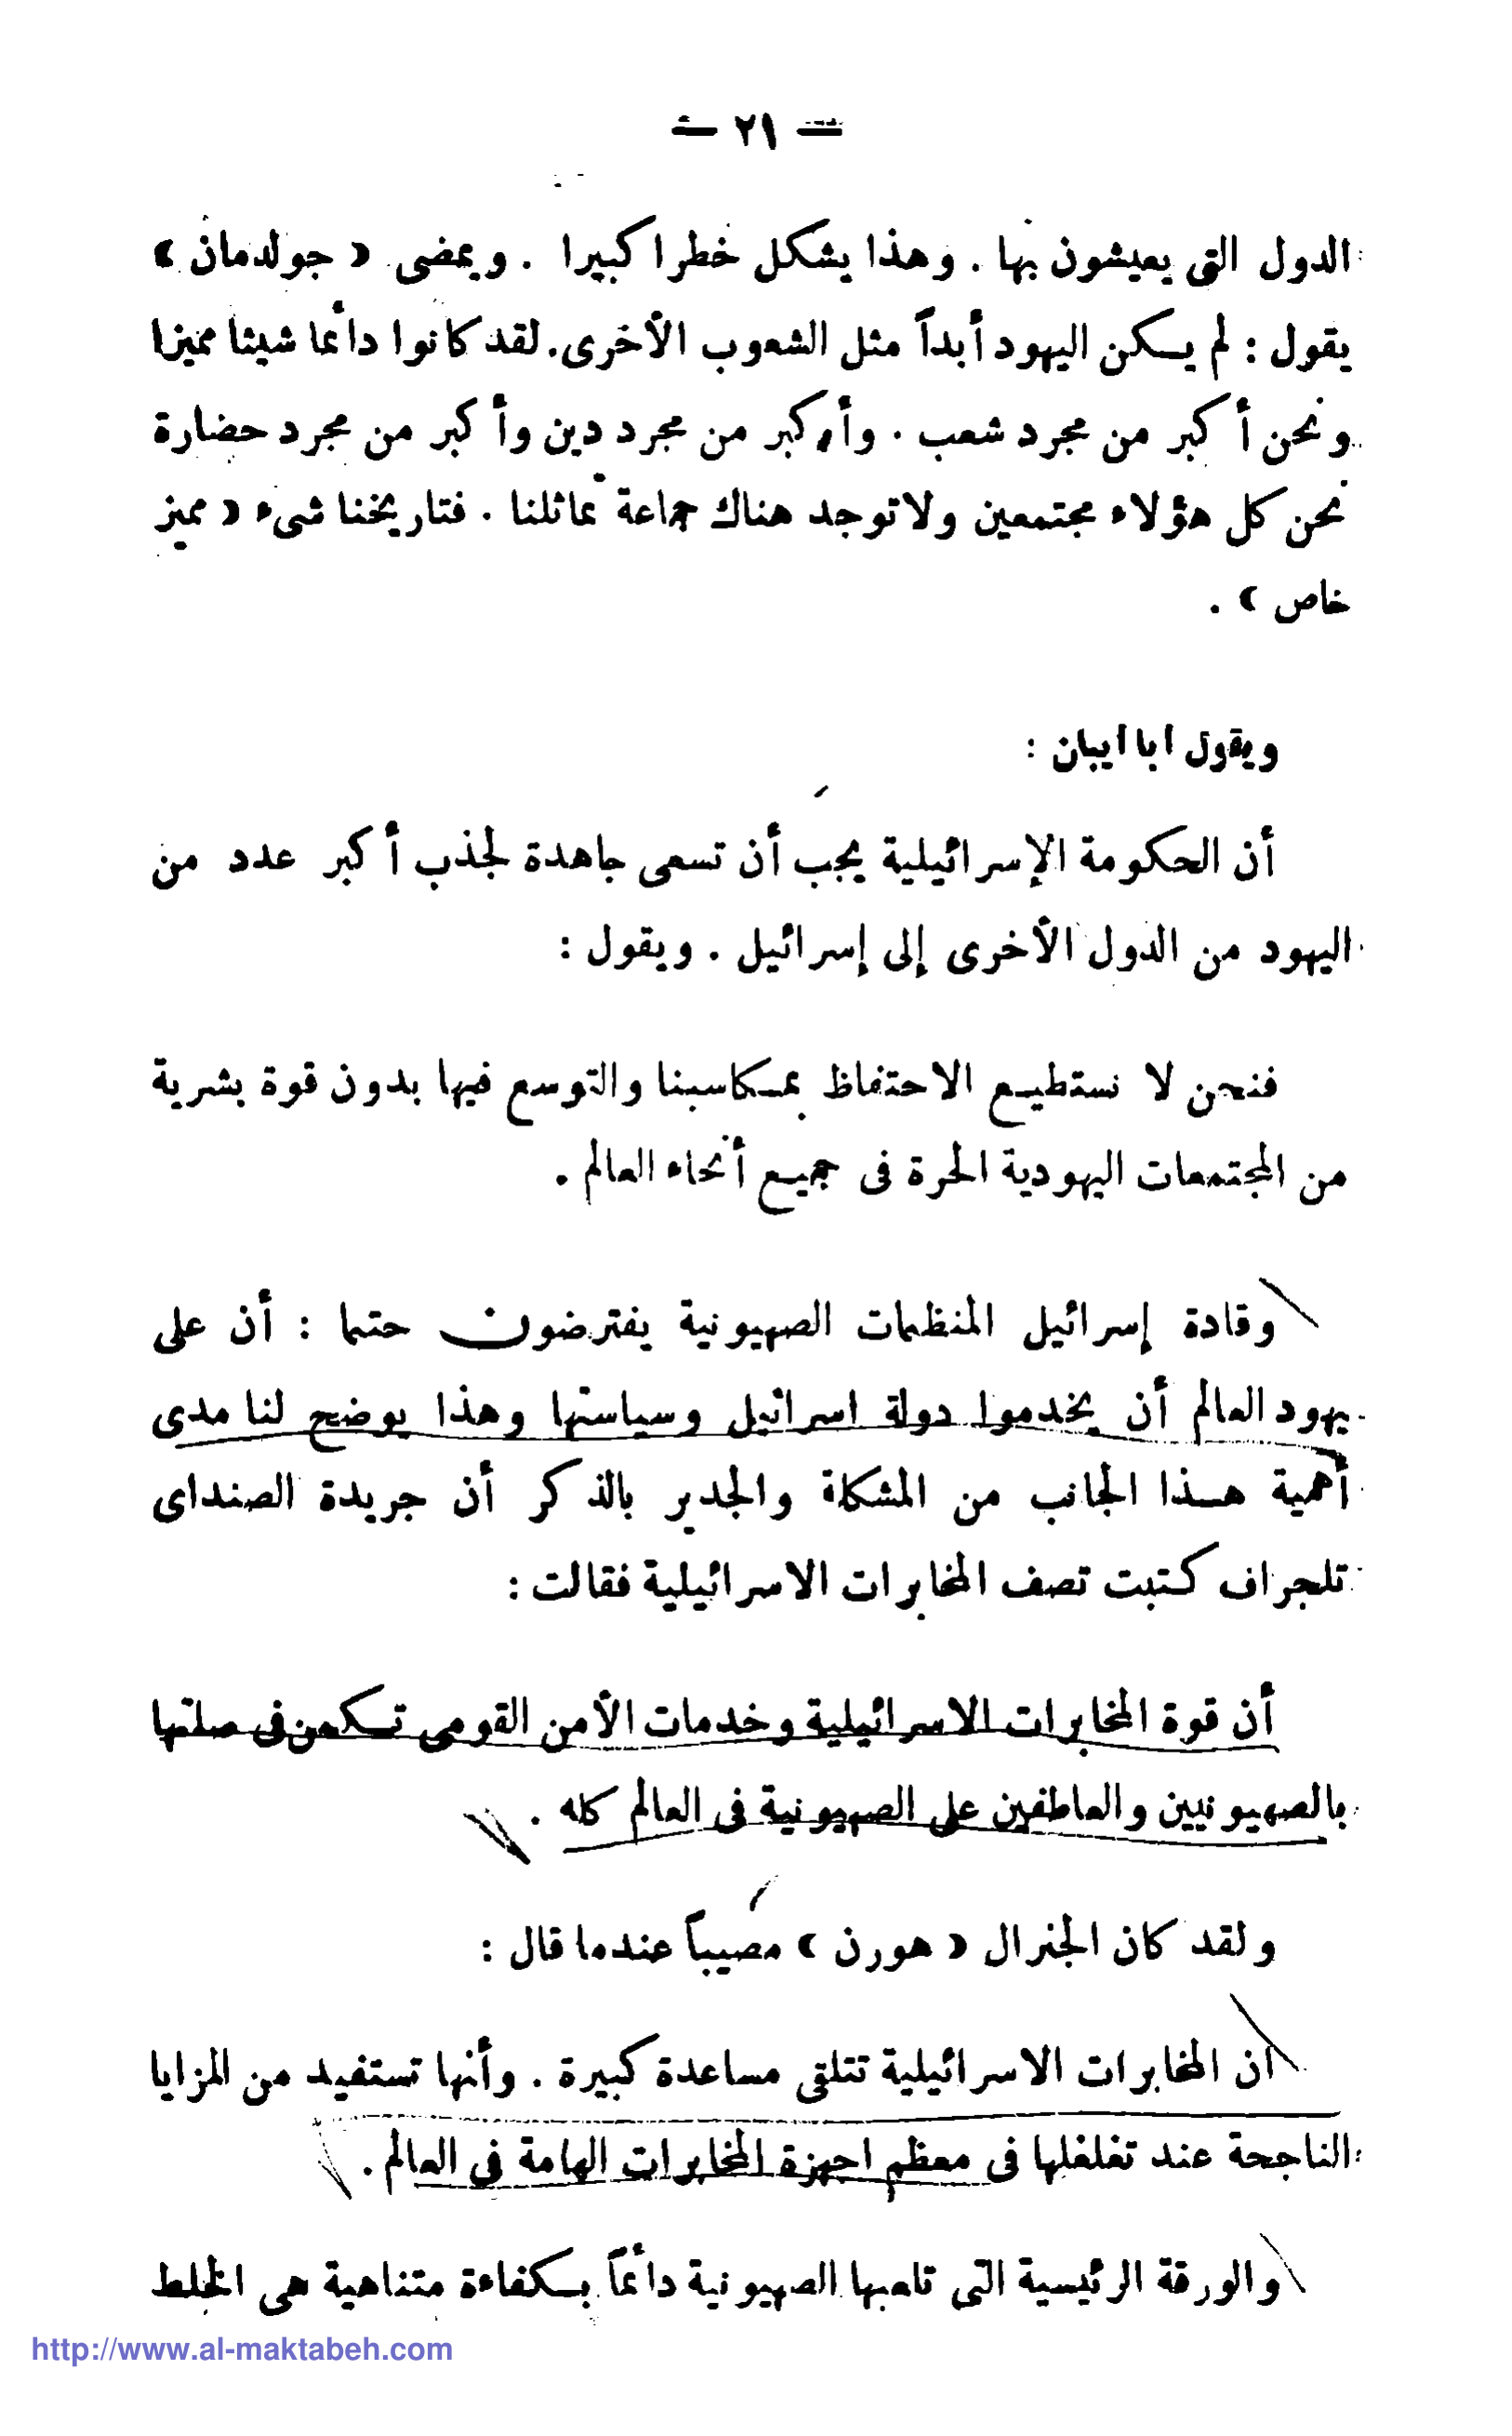 — ٢١ —
الدول التى يعيشون بها . وهذا يشكل خطرا كبيرا . ويمضى « جولدمان »
يقول : لم يكن اليهود أبداً مثل الشعوب الأخرى. لقد كانوا دائما شيئا مميزا
ونحن أكبر من مجرد شعب . وأكبر من مجرد دين وأكبر من مجرد حضارة
نحن كل هؤلاء مجتمعين ولا توجد هناك جماعة تماثلنا . فتاريخنا شىء « مميز
خاص » .
ويقول ابا ايبان :
أن الحكومة الإسرائيلية يجب أن تسعى جاهدة لجذب أكبر عدد من
اليهود من الدول الأخرى إلى إسرائيل . ويقول :
فنحن لا نستطيع الاحتفاظ بمكاسبنا والتوسع فيها بدون قوة بشرية
من المجتمعات اليهودية الحرة فى جميع أنحاء العالم .
وقادة إسرائيل المنظمات الصهيونية يفترضون حتما : أن على
يهود العالم أن يخدموا دولة اسرائيل وسياستها وهذا يوضح لنا مدى
أهمية هذا الجانب من المشكلة والجدير بالذكر أن جريدة الصنداى
تلجراف كتبت تصف المخابرات الاسرائيلية فقالت :
أن قوة المخابرات الاسرائيلية وخدمات الأمن القومى تكمن فى صلتها
بالصهيونيين والعاطفين على الصهيونية فى العالم كله .
ولقد كان الجنرال « هورن » مصيباً عندما قال :
ان المخابرات الاسرائيلية تتلقى مساعدة كبيرة . وأنها تستفيد من المزايا
الناجحة عند تغلغلها فى معظم اجهزة المخابرات الهامة فى العالم .
والورقة الرئيسية التى تلعبها الصهيونية دائماً بكفاءة متناهية هى الخلط
http://www.al-maktabeh.com